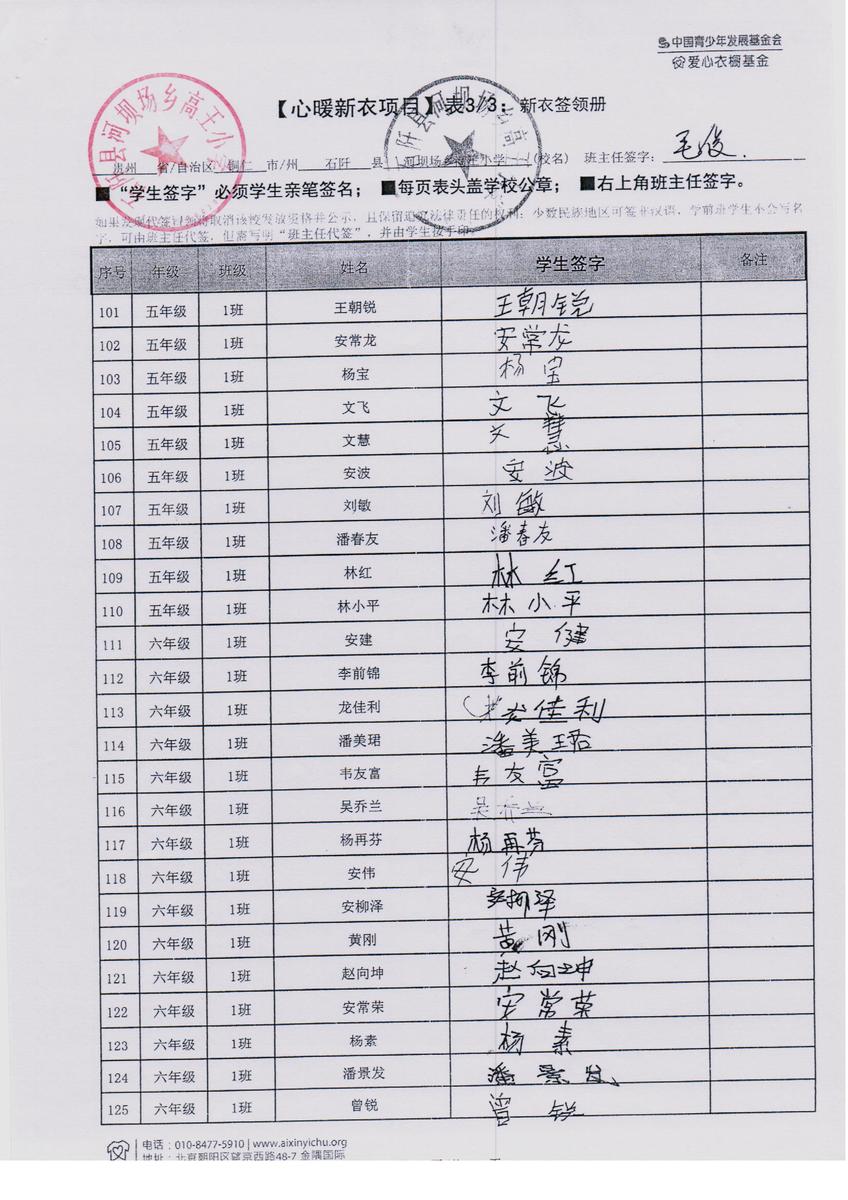 中国青少年发展基金会
爱心衣橱基金
【心暖新衣项目】表3/3：新衣签领册
贵州 省/自治区 铜仁 市/州 石阡 县 河坝场乡高王小学 (校名) 班主任签字：毛俊
■“学生签字”必须学生亲笔签名； ■每页表头盖学校公章； ■右上角班主任签字。
如果发现代签冒领将取消该校发放资格并公示，且保留追究法律责任的权利；少数民族地区可签非汉语，学前班学生不会写名
字，可由班主任代签，但需写明“班主任代签”，并由学生按手印。
序号 年级 班级 姓名 学生签字 备注
101 五年级 1班 王朝锐 王朝锐
102 五年级 1班 安常龙 安常龙
103 五年级 1班 杨宝 杨宝
104 五年级 1班 文飞 文飞
105 五年级 1班 文慧 文慧
106 五年级 1班 安波 安波
107 五年级 1班 刘敏 刘敏
108 五年级 1班 潘春友 潘春友
109 五年级 1班 林红 林红
110 五年级 1班 林小平 林小平
111 六年级 1班 安建 安健
112 六年级 1班 李前锦 李前锦
113 六年级 1班 龙佳利 龙佳利
114 六年级 1班 潘美珺 潘美珺
115 六年级 1班 韦友富 韦友富
116 六年级 1班 吴乔兰 吴乔兰
117 六年级 1班 杨再芬 杨再芬
118 六年级 1班 安伟 安伟
119 六年级 1班 安柳泽 安柳泽
120 六年级 1班 黄刚 黄刚
121 六年级 1班 赵向坤 赵向坤
122 六年级 1班 安常荣 安常荣
123 六年级 1班 杨素 杨素
124 六年级 1班 潘景发 潘景发
125 六年级 1班 曾锐 曾锐
电话：010-8477-5910 | www.aixinyichu.org
地址：北京朝阳区望京西路48-7 金隅国际